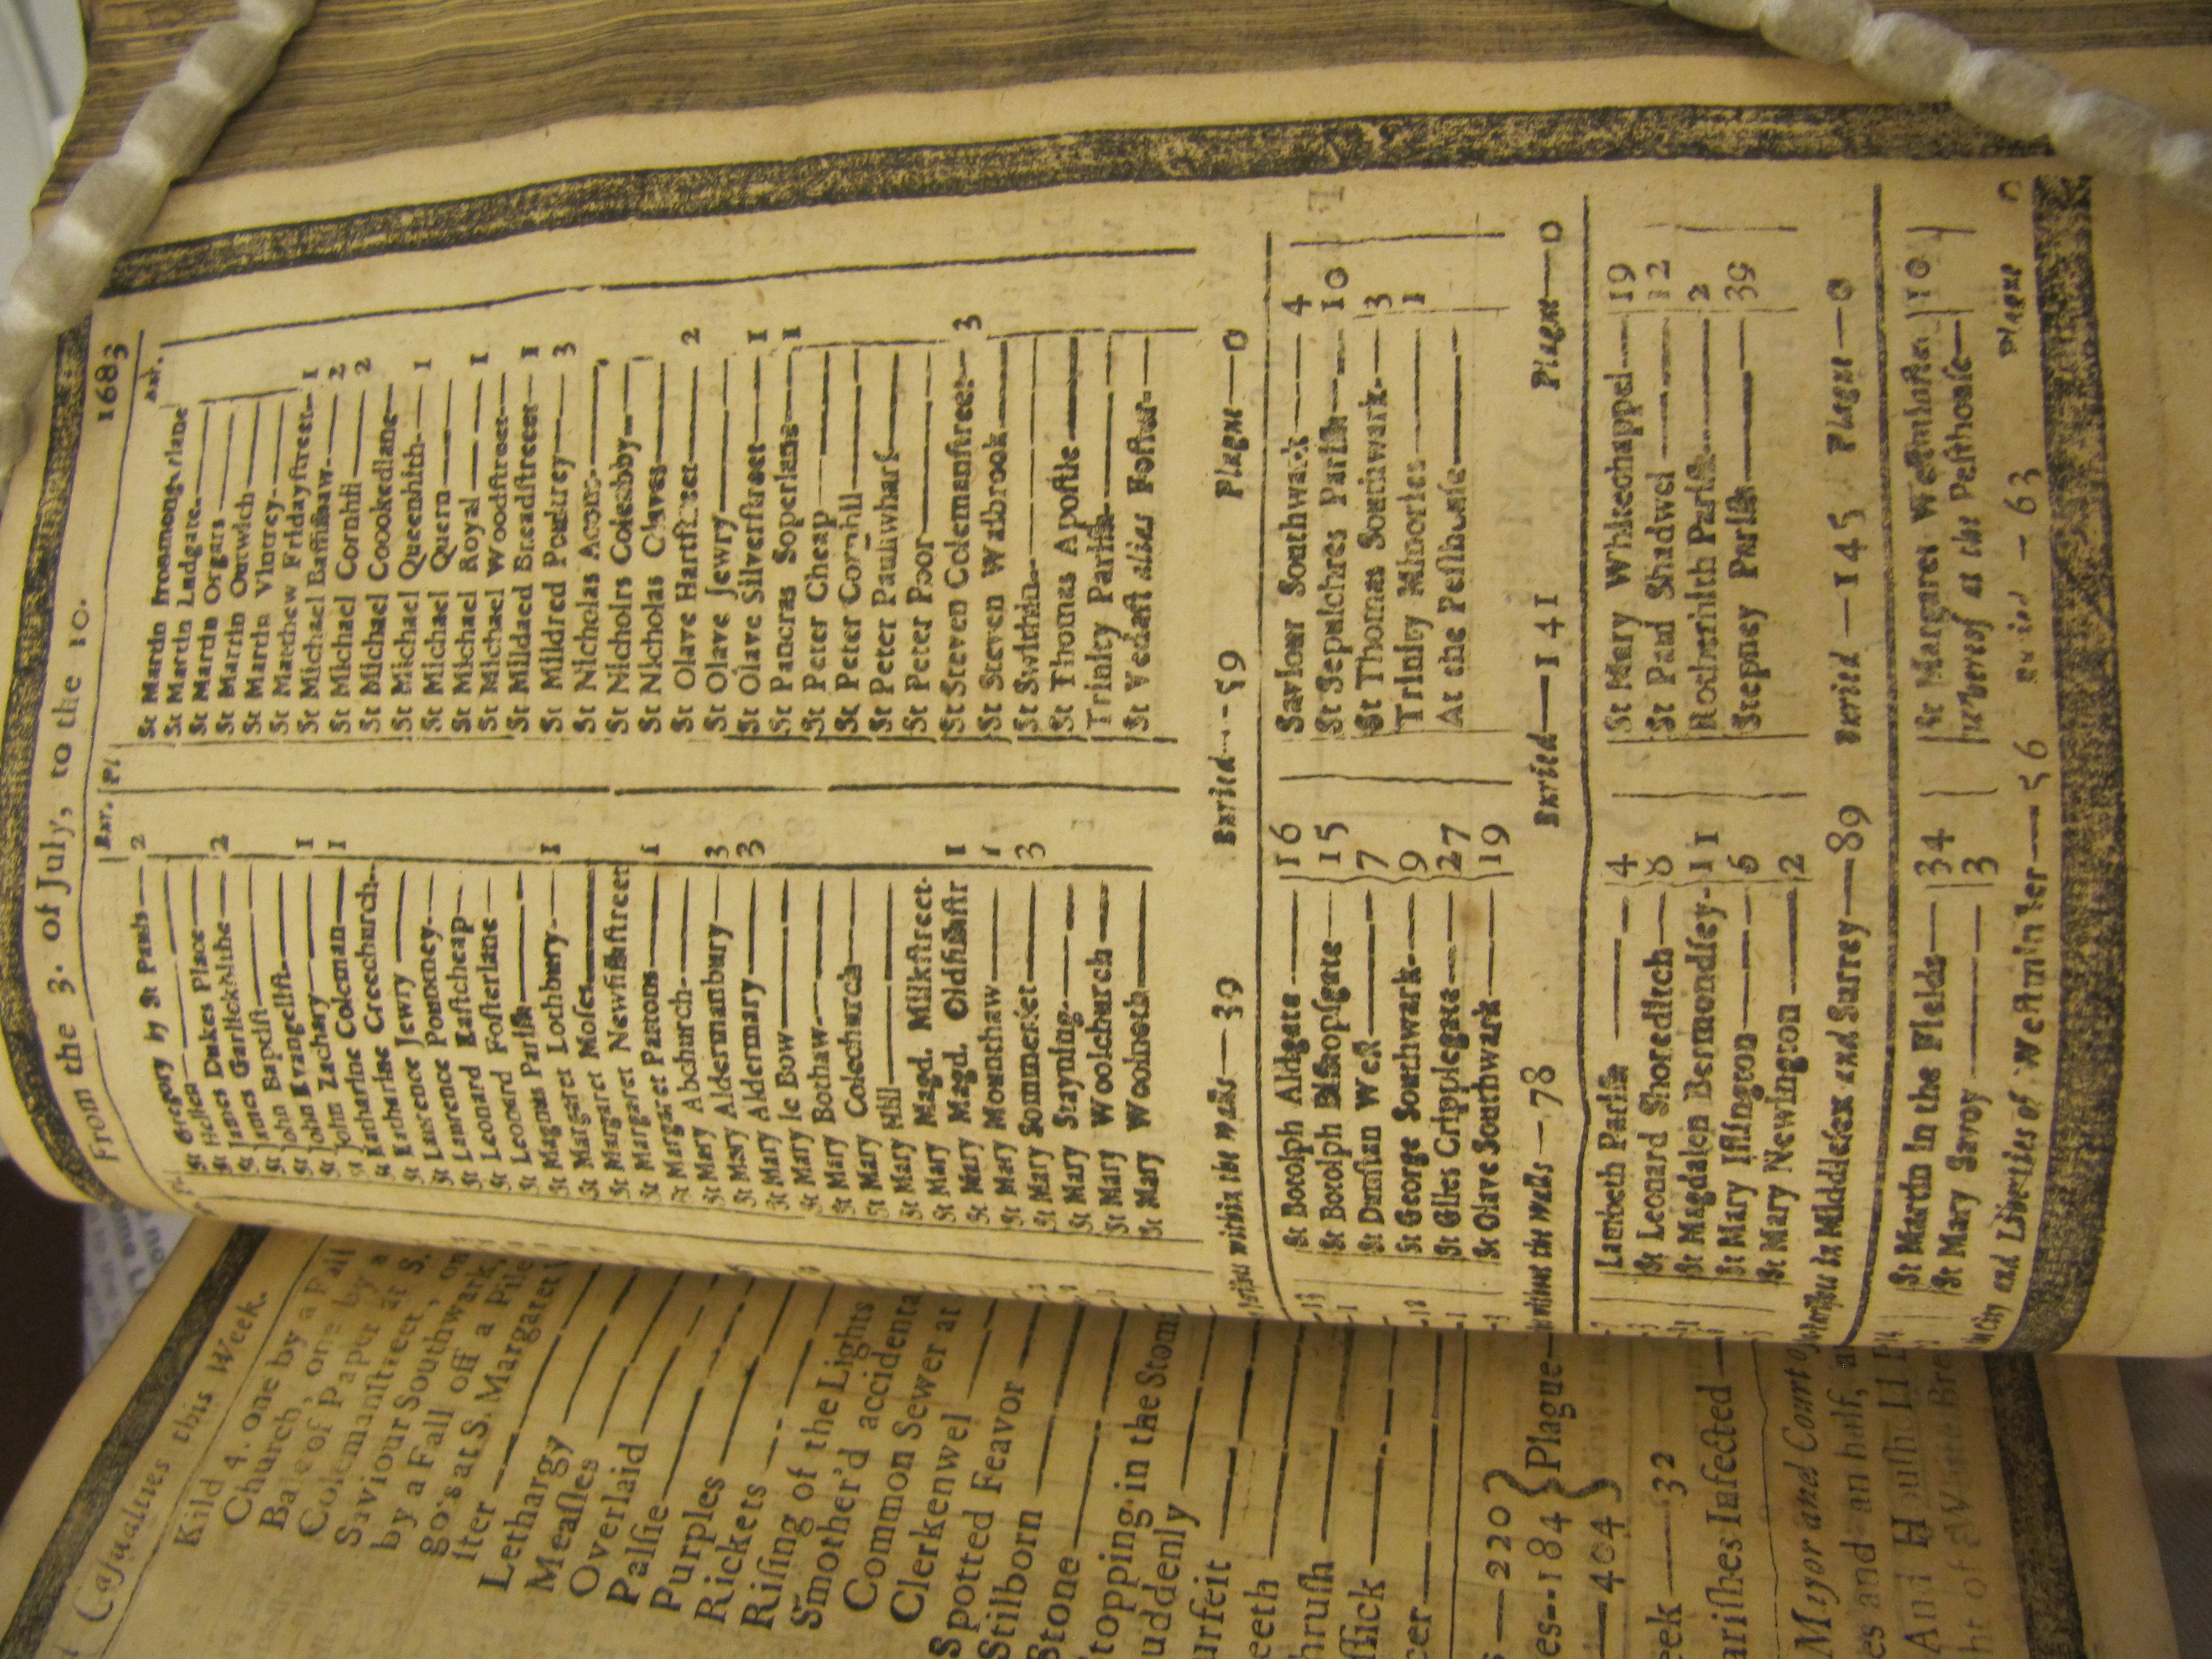 From the 3. of July, to the 10. 1683
Bur. Pl
St Gregory by St Pauls— 2
St Hellen—
St James Dukes Place—
St James Garlickhithe— 2
St John Baptist—
St John Evangelist— 1
St John Zachary— 1
St Katharine Coleman—
St Katharine Creechurch—
St Laurence Jewry—
St Laurence Pountney—
St Leonard Eastcheap—
St Leonard Fosterlane—
St Magnus Parish—
St Margaret Lothbury— 1
St Margaret Moses—
St Margaret Newfishstreet
St Margaret Pattons— 1
St Mary Abchurch—
St Mary Aldermanbury— 3
St Mary Aldermary— 3
St Mary le Bow—
St Mary Bothaw—
St Mary Colechurch—
St Mary Hill—
St Mary Magd. Milkstreet-
St Mary Magd. Oldfishstr 1
St Mary Mounthaw— 1
St Mary Sommerset— 3
St Mary Stayning—
St Mary Woolchurch—
St Mary Woolnoth—
St Martin Iremongerlane
St Martin Ludgate—
St Martin Orgars—
St Martin Outwich—
St Martin Vintrey—
St Matthew Fridaystreet— 1
St Michael Bassishaw— 2
St Michael Cornhil— 2
St Michael Crookedlane—
St Michael Queenhith— 1
St Michael Quern—
St Michael Royal— 1
St Michael Woodstreet—
St Mildred Breadstreet— 1
St Mildred Poultrey— 3
St Nicholas Acons—
St Nicholas Coleabby—
St Nicholas Olaves—
St Olave Hartstreet— 2
St Olave Jewry—
St Olave Silverstreet— 1
St Pancras Soperlane— 1
St Peter Cheap—
St Peter Cornhil—
St Peter Paulswharf—
St Peter Poor—
St Steven Colemanstreet— 3
St Steven Walbrook—
St Swithin—
St Thomas Apostle—
Trinity Parish—
St Vedast alias Foster—
within the walls—39 Buried—59 Plague—0
St Botolph Aldgate—16
St Botolph Bishopsgate—15
St Dunstan West—7
St George Southwark—9
St Giles Cripplegate—27
St Olave Southwark—19
Saviour Southwark—4
St Sepulchres Parish—10
St Thomas Southwark—3
Trinity Minories—1
At the Pesthouse—
without the walls—78 Buried—141 Plague—0
Lambeth Parish—4
St Leonard Shoreditch—8
St Magdalen Bermondsey-11
St Mary Islington—
St Mary Newington—2
St Mary Whitechappel—19
St Paul Shadwel—12
Rotherhith Parish—2
Stepney Parish—39
in Middlesex and Surrey—89 Buried—145 Plague—0
St Martin in the Fields—34
St Mary Savoy—3
St Margaret Westminster 10
whereof at the Pesthouse—
City and Liberties of Westminster—56 Buried—63 Plague 0
Casualties this Week.
Kild 4. one by a Fall
Church, one by a
Bale of Paper at S.
Colemanstreet, on
Saviour Southwark,
by a Fall off a Pile
go's at S. Margaret
ster
Lethargy
Meassles
Overlaid
Palsie
Purples
Rickets
Rising of the Lights
Smother'd accidenta
Common Sewer at
Clerkenwel
Spotted Feavor
Stilborn
Stone
topping in the Stom
uddenly
urfeit
eeth
hrush
ssick
cer
—220
es--184 } Plague—
—404
eek—32
arishes Infected—
Mayor and Court of
es and an half, a